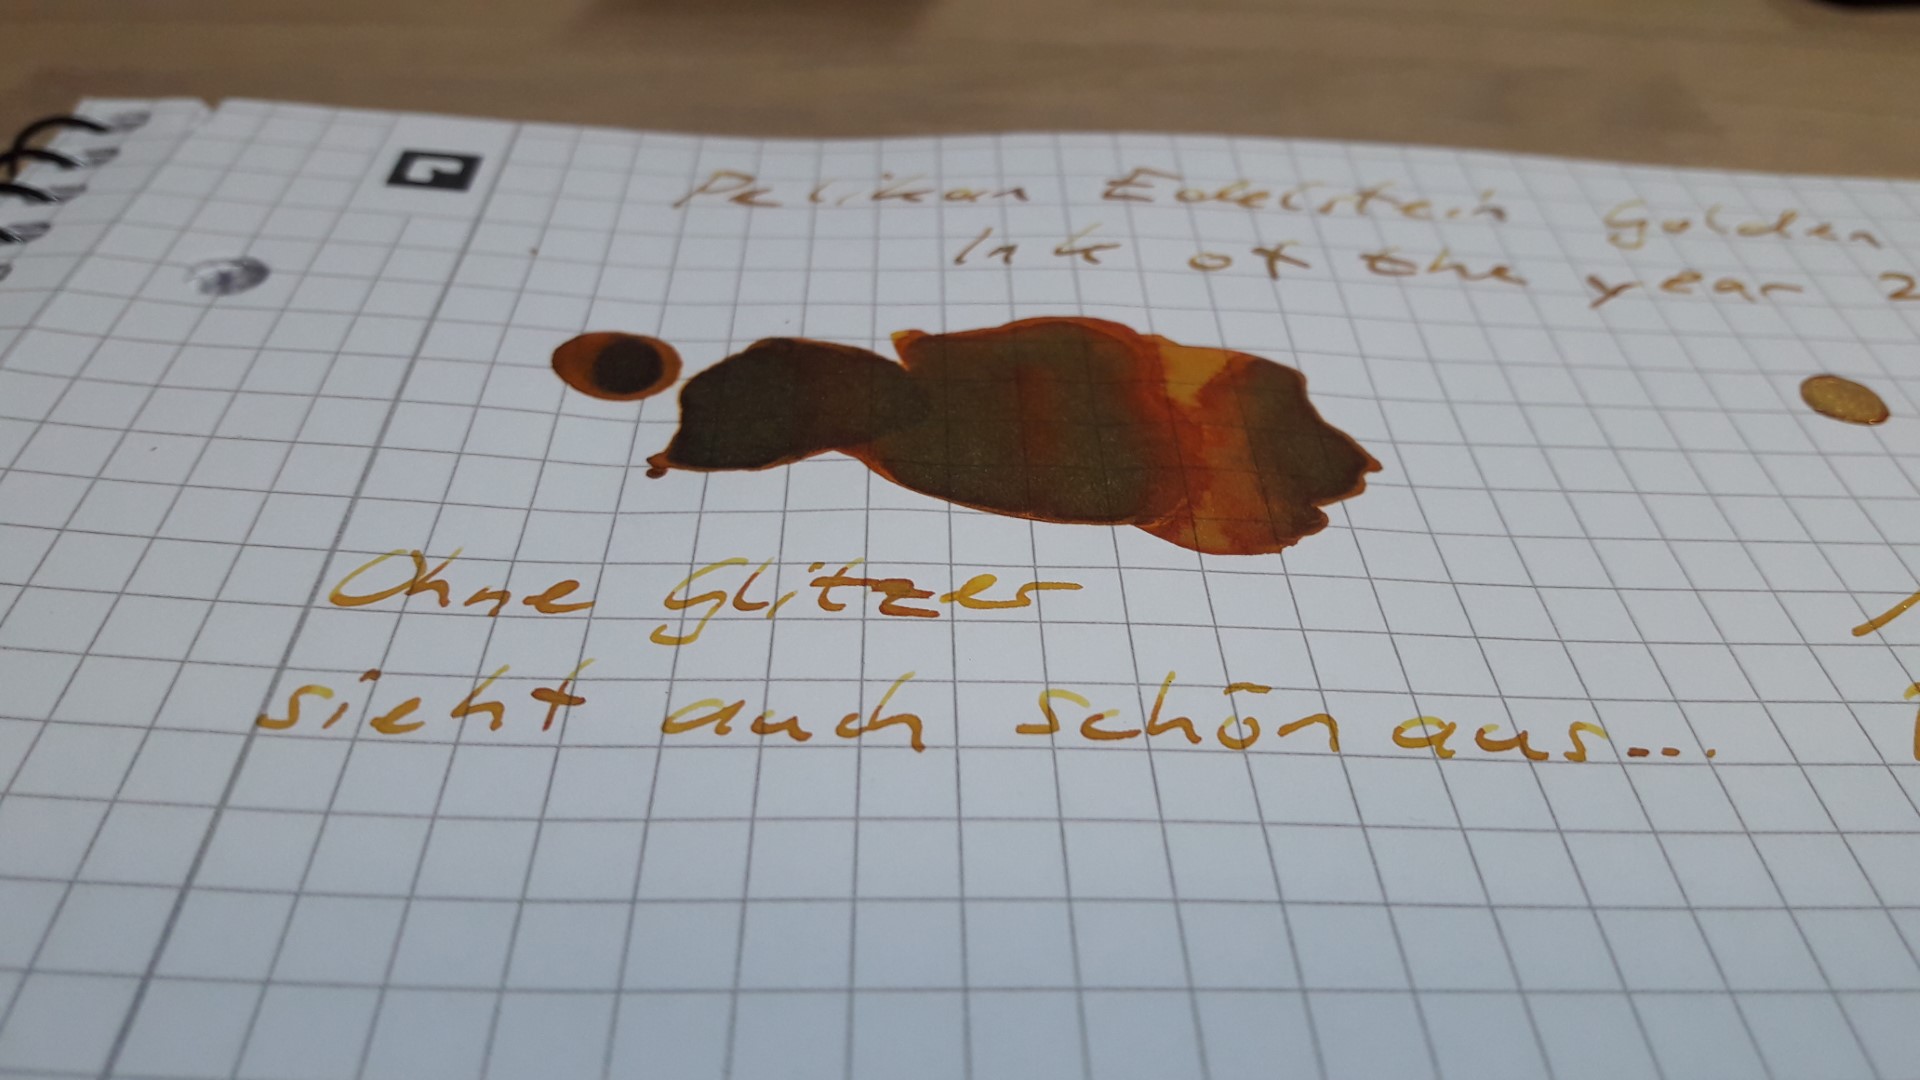 Pelikan Edelstein Golden
Ink of the year 2
Ohne Glitzer
sieht auch schön aus...